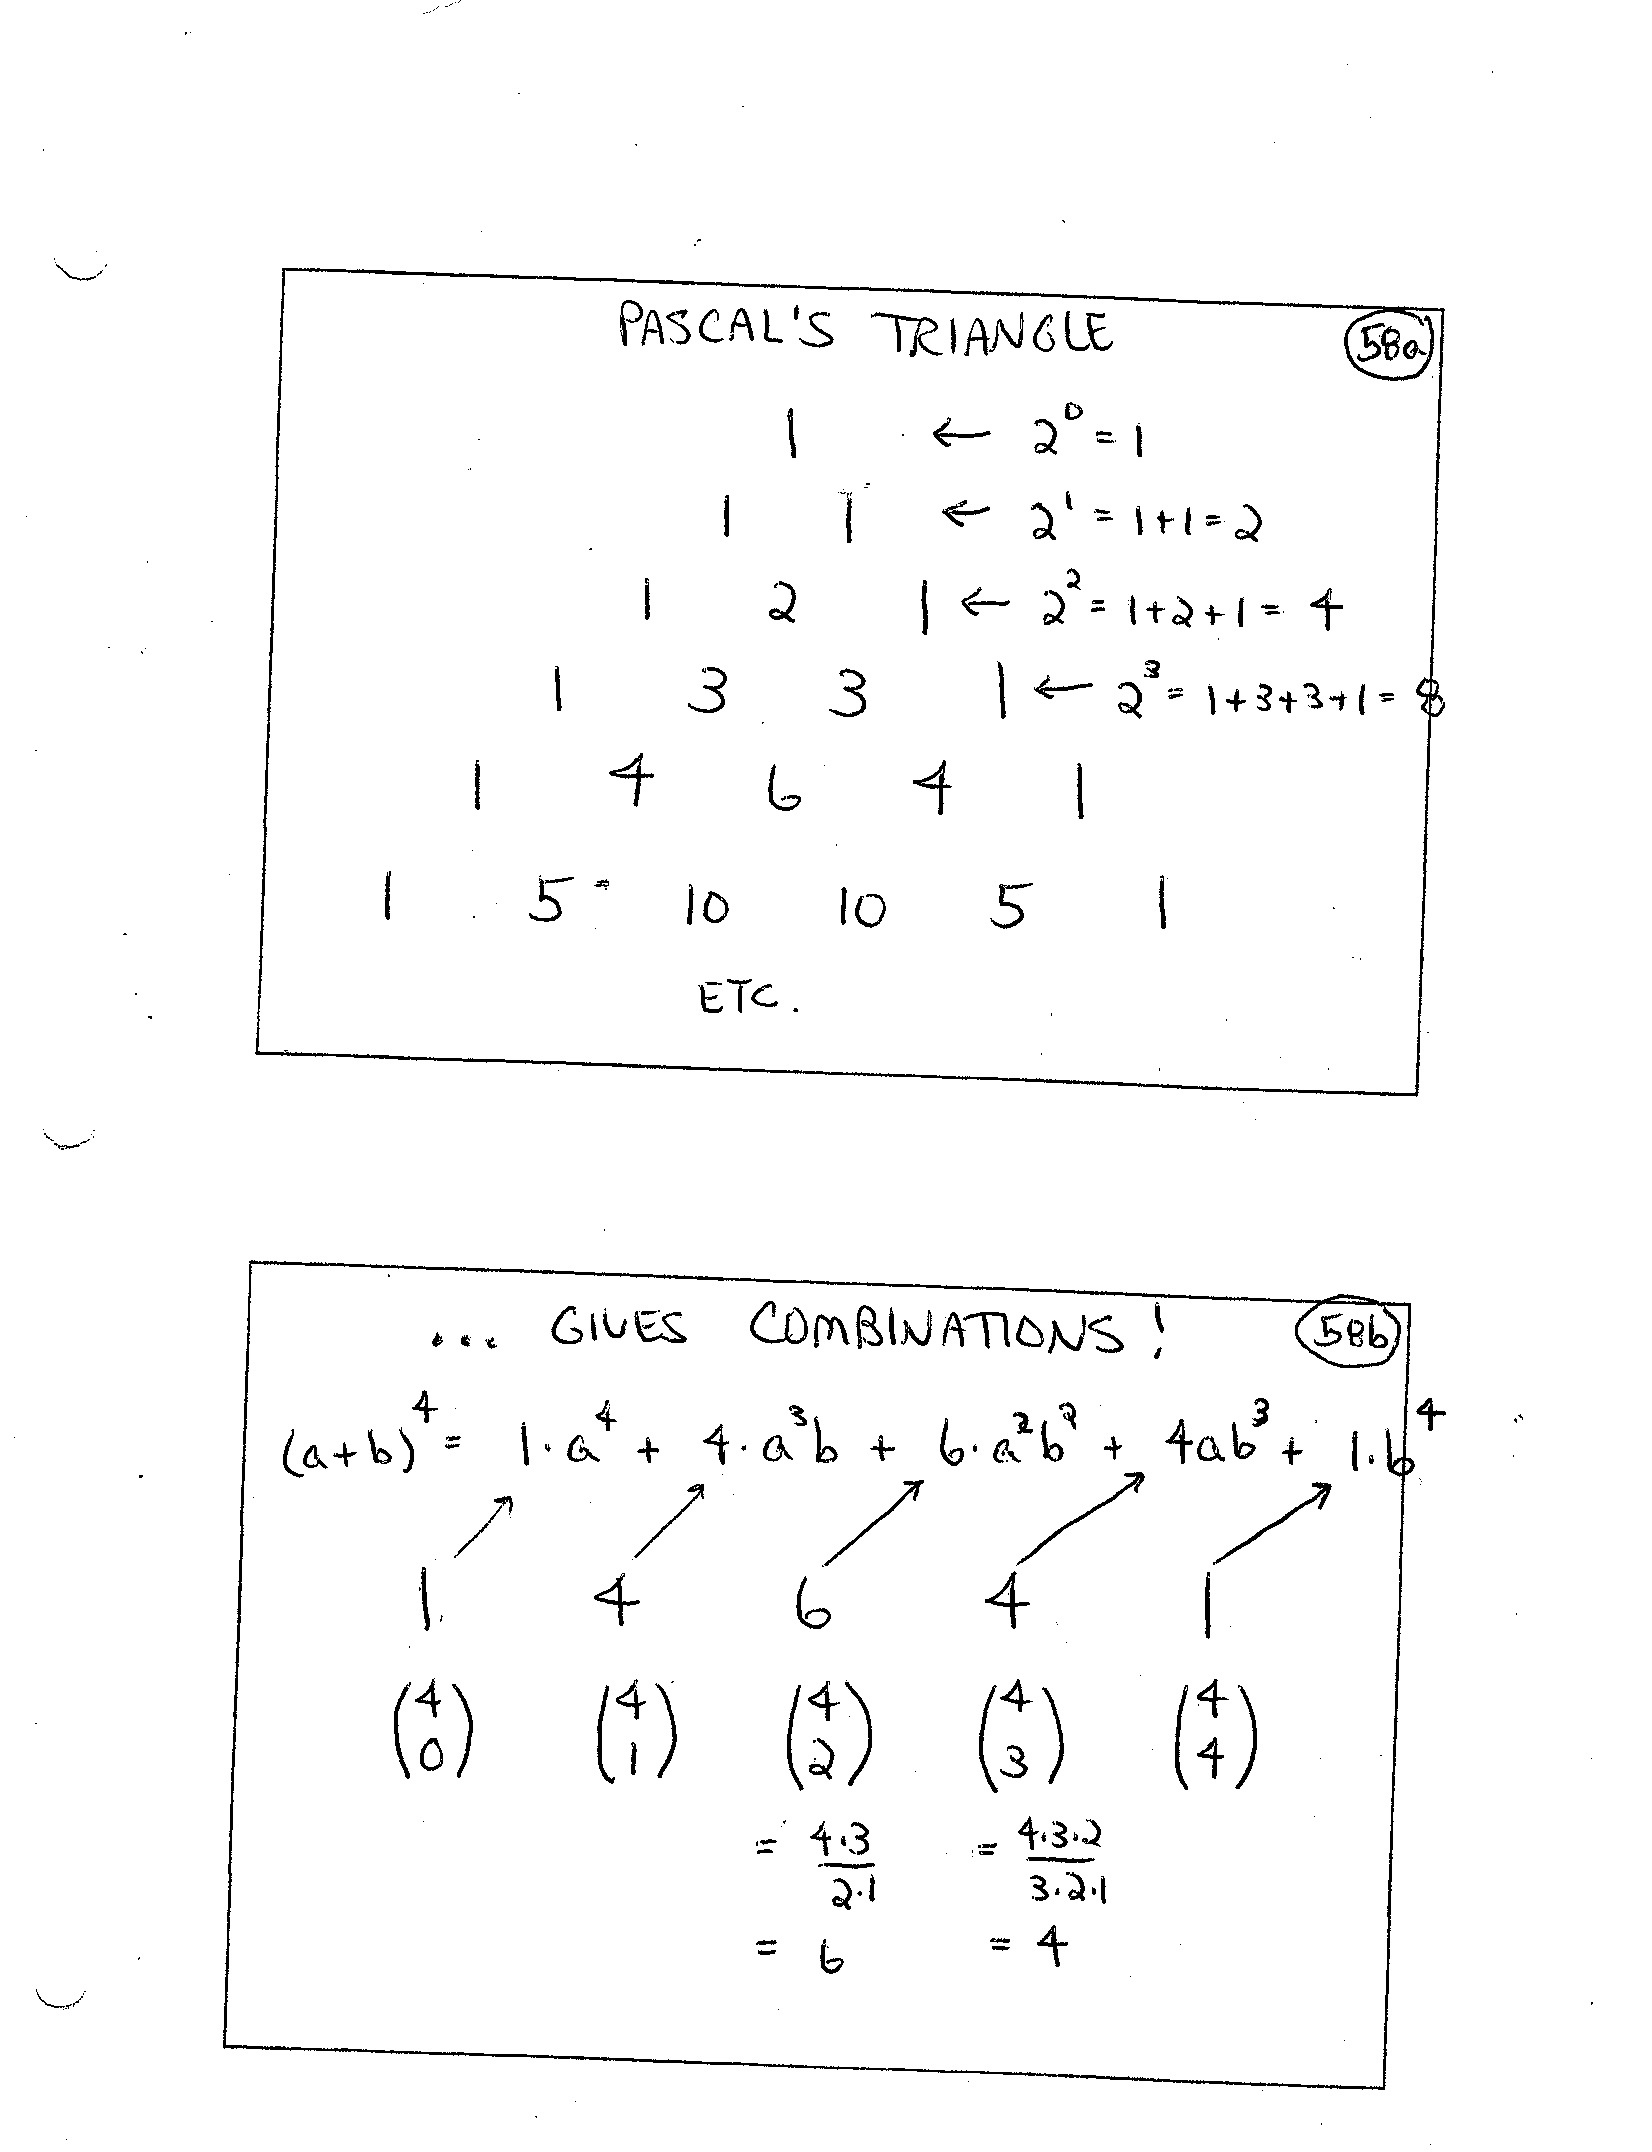 PASCAL'S TRIANGLE 58a
1 ← 2⁰ = 1
1 1 ← 2¹ = 1+1 = 2
1 2 1 ← 2² = 1+2+1 = 4
1 3 3 1 ← 2³ = 1+3+3+1 = 8
1 4 6 4 1
1 5 10 10 5 1
ETC.
... GIVES COMBINATIONS! 58b
(a+b)⁴ = 1·a⁴ + 4·a³b + 6·a²b² + 4ab³ + 1·b⁴
1 4 6 4 1
(4 0) (4 1) (4 2) (4 3) (4 4)
= 4·3/2·1 = 4·3·2/3·2·1
= 6 = 4